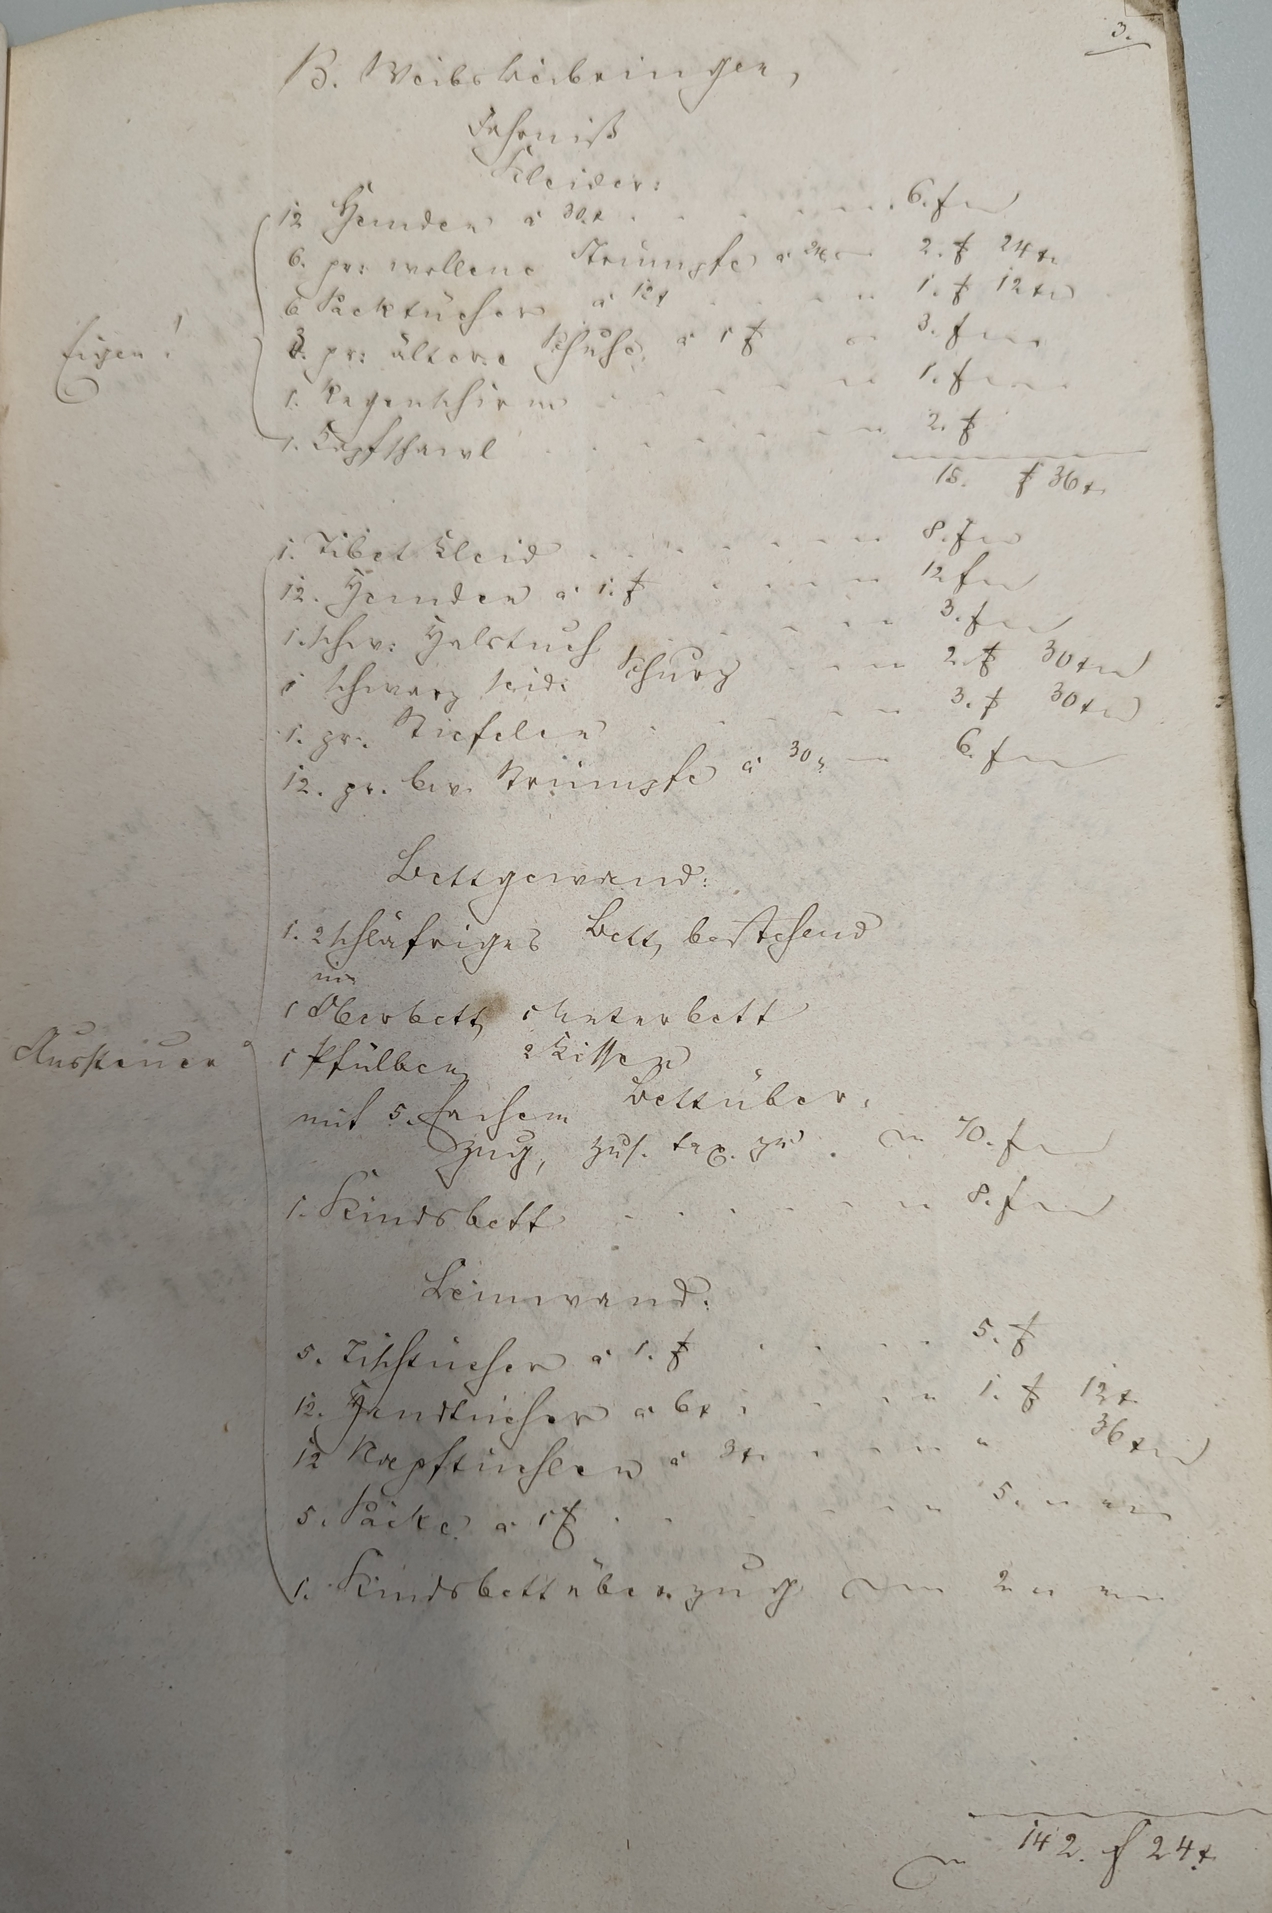 3.
B. Weibsbeibringen,
Fahrniß
Kleider:
12 Hemden à 30x . . . . . 6. f
6. pr: wollene Strümpfe à 24x 2. f 24x
6 Säcktücher à 12x . . . . 1. f 12x
3. pr: ältere Schuhe à 1 f 3. f
Eigen!
1. Regenschirm . . . . . 1. f
1. Kopfschawl . . . . . 2. f
15. f 36x
1. Tibet Kleid . . . . . 8. f
12. Hemden à 1. f . . . . 12 f
1. schw: Halstuch . . . . 3. f
1 schwarz seid: Schurz . . . 2. f 30x
1. pr: Stiefelen . . . . . 3. f 30x
12. pr. bw. Strümpfe à 30x 6. f
Bettgewand:
1. 2 schläfriges Bett, bestehend
in
1 Oberbett, 1 Unterbett
Aussteuer
1 Pfülben, 2 Kissen
mit 5. fachem Bettüber,
zug, zus. tax. zu . 70. f
1. Kindsbett . . . . . 8. f
Leinwand:
5. Tischtücher à 1. f . . . . 5. f
12. Handtücher à 6x . . . . 1. f 12x
12 Kopftüchlen à 3x . . . . " 36x
5. Säcke à 1 f . . . . . 5. " "
1. Kindsbettüberzug 2 " "
142. f 24x